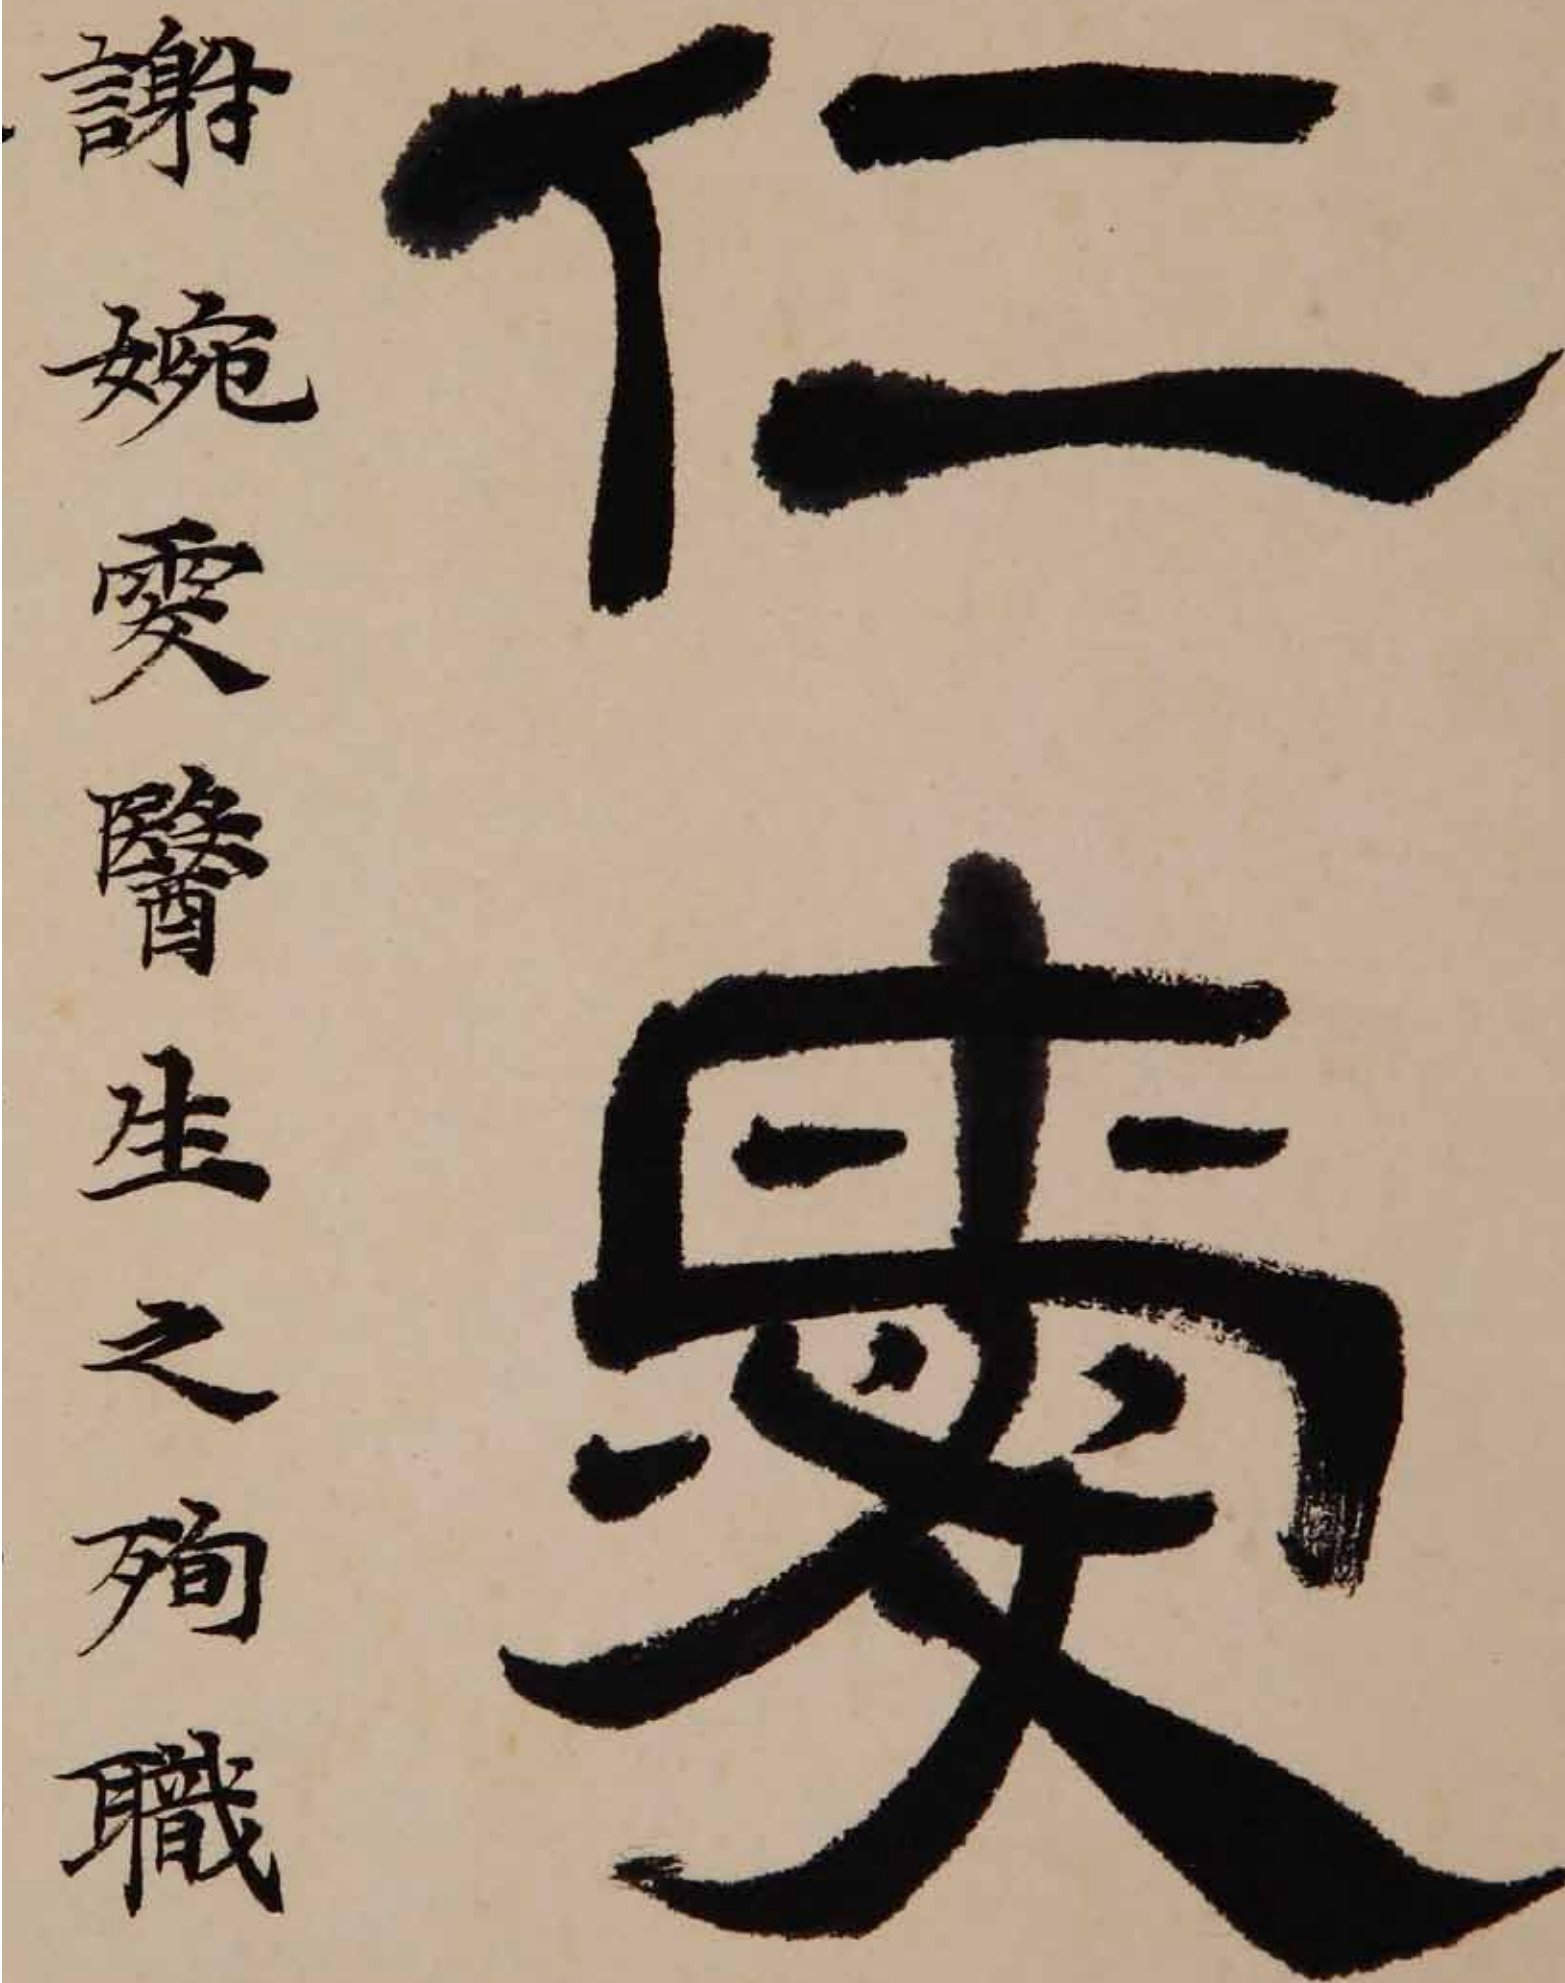 仁愛
謝婉雯醫生之殉職